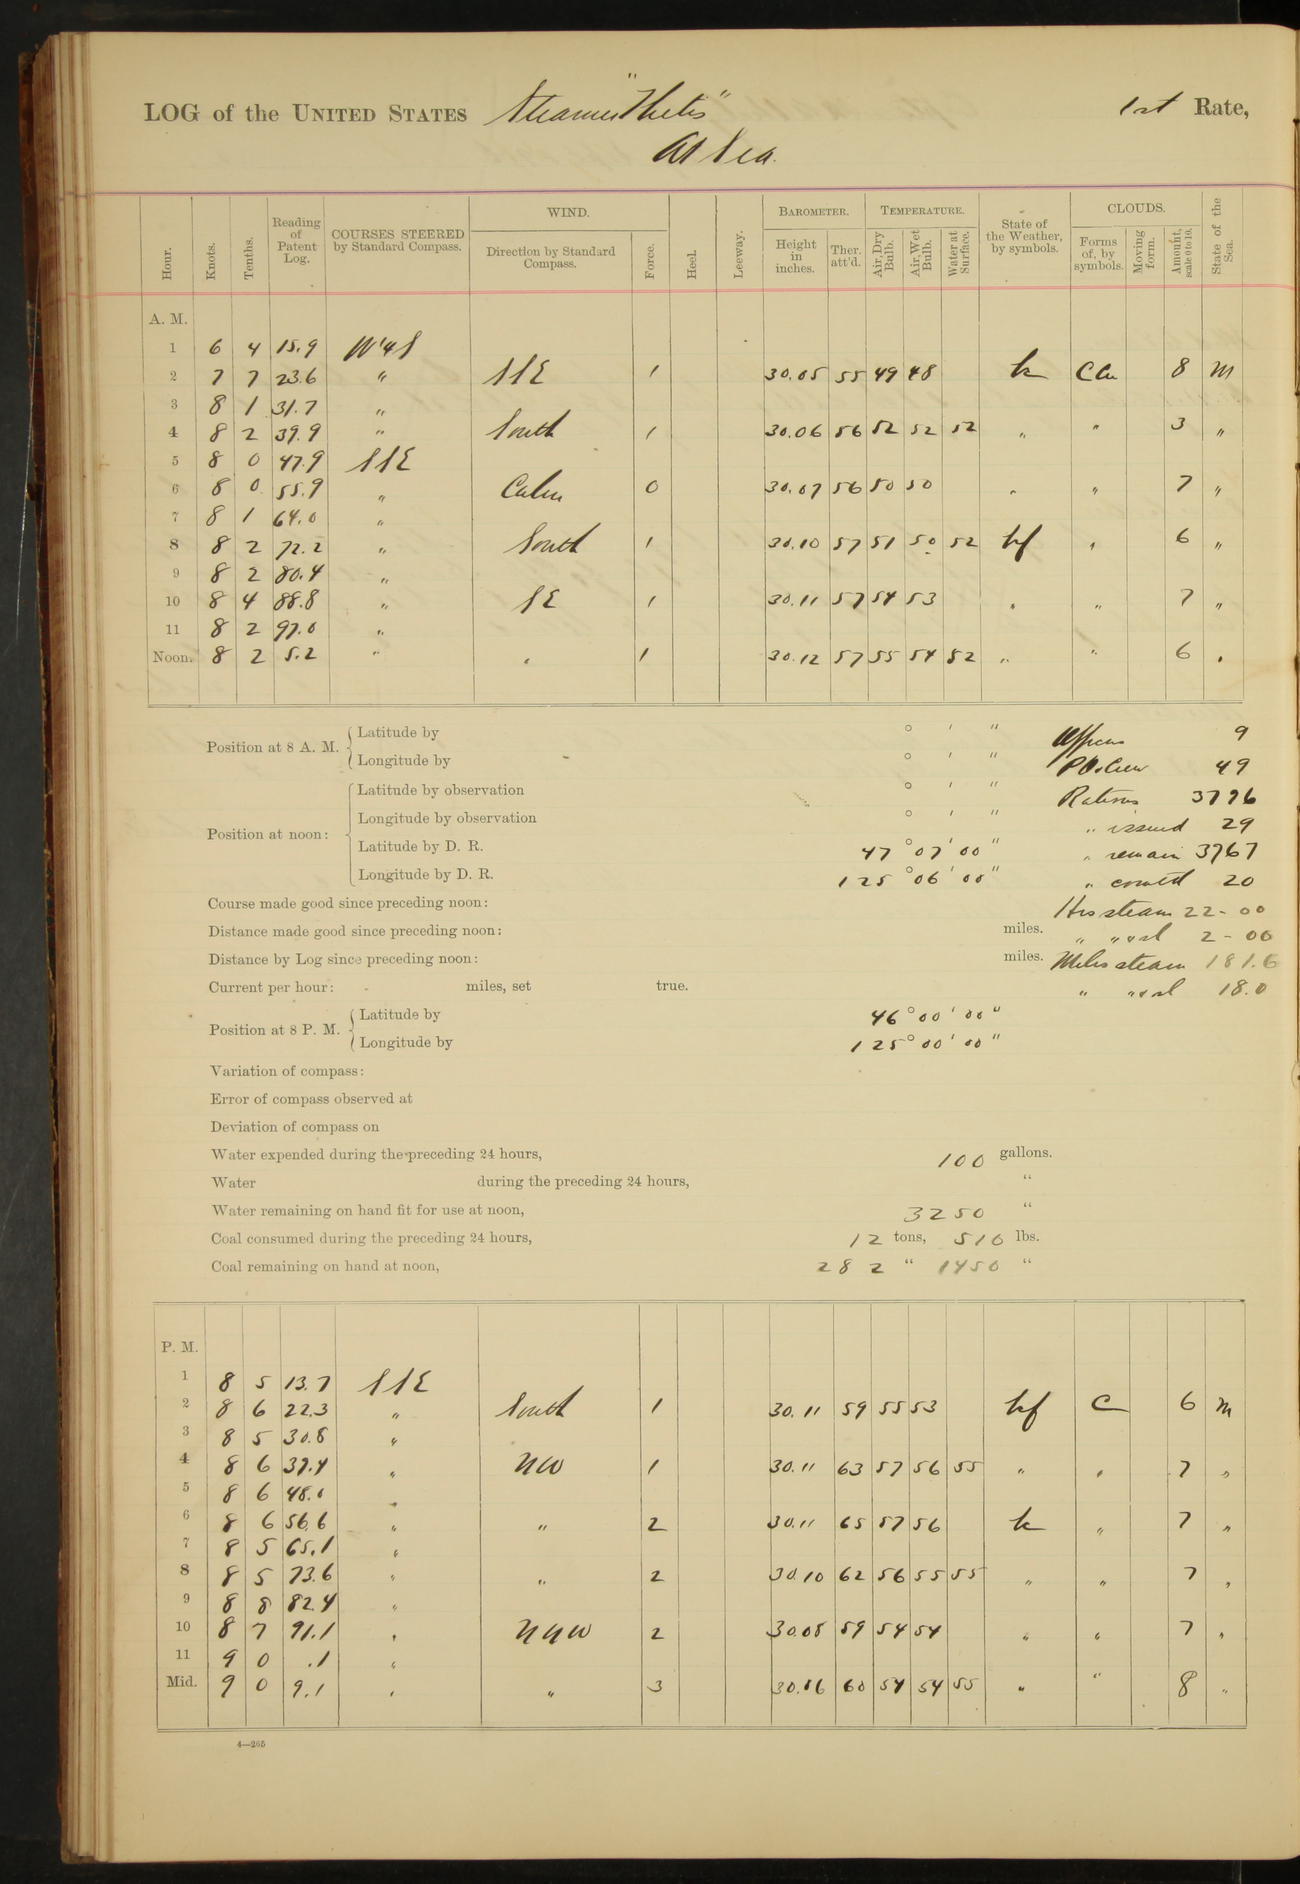 LOG of the UNITED STATES Steamer "Thetis" 1st Rate,
At Sea.
Hour. Knots. Tenths. Reading of Patent Log. COURSES STEERED by Standard Compass. WIND. Direction by Standard Compass. Force. Heel. Leeway. BAROMETER. Height in inches. Ther. att'd. TEMPERATURE. Air, Dry Bulb. Air, Wet Bulb. Water at Surface. State of the Weather, by symbols. CLOUDS. Forms of, by symbols. Moving form. Amount, scale 0 to 10. State of the Sea.
A. M.
1 6 4 15.9 W'4S
2 7 7 23.6 " SSE 1 30.05 55 49 48 C Cu 8 M
3 8 1 31.7 "
4 8 2 39.9 " South 1 30.06 56 52 52 52 " " 3 "
5 8 0 47.9 SSE
6 8 0 55.9 " Calm 0 30.07 56 50 50 " " 7 "
7 8 1 64.0 "
8 8 2 72.2 " South 1 30.10 57 51 50 52 " 6 "
9 8 2 80.4 "
10 8 4 88.8 " SE 1 30.11 57 54 53 " " 7 "
11 8 2 97.0 "
Noon. 8 2 5.2 " " 1 30.12 57 55 54 52 " " 6 "
Position at 8 A. M. Latitude by ° ' " Officers 9
Longitude by ° ' " 49
Position at noon: Latitude by observation ° ' " Rations 3796
Longitude by observation ° ' " " issued 29
Latitude by D. R. 47 ° 07 ' 00 " " remain 3767
Longitude by D. R. 125 ° 06 ' 00 " " comtd 20
Course made good since preceding noon: Hrs steam 22-00
Distance made good since preceding noon: miles. " " 2-00
Distance by Log since preceding noon: miles. Miles steam 181.6
Current per hour: miles, set true. " " 18.0
Position at 8 P. M. Latitude by 46 ° 00 ' 00 "
Longitude by 125 ° 00 ' 00 "
Variation of compass:
Error of compass observed at
Deviation of compass on
Water expended during the preceding 24 hours, 100 gallons.
Water during the preceding 24 hours, "
Water remaining on hand fit for use at noon, 3250 "
Coal consumed during the preceding 24 hours, 12 tons, 510 lbs.
Coal remaining on hand at noon, 282 " 1450 "
P. M.
1 8 5 13.7 SSE
2 8 6 22.3 " South 1 30.11 59 55 53 C 6 M
3 8 5 30.8 "
4 8 6 39.4 " NW 1 30.11 63 57 56 55 " " 7 "
5 8 6 48.0 "
6 8 6 56.6 " " 2 30.11 65 57 56 " 7 "
7 8 5 65.1 "
8 8 5 73.6 " " 2 30.10 62 56 55 55 " " 7 "
9 8 8 82.4 "
10 8 7 91.1 " NNW 2 30.08 59 54 54 " " 7 "
11 9 0 .1 "
Mid. 9 0 9.1 " " 3 30.06 60 54 54 55 " " 8 "
4—265